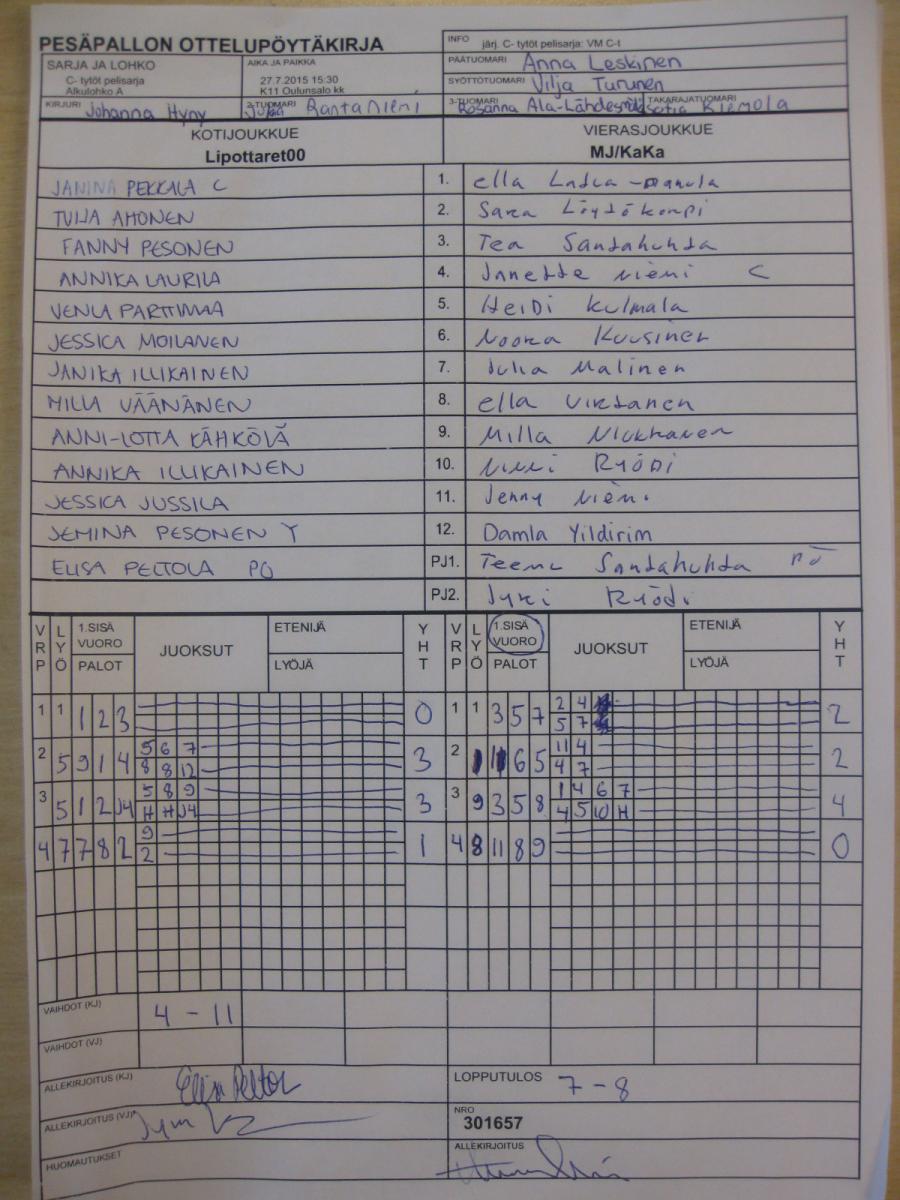 PESÄPALLON OTTELUPÖYTÄKIRJA
INFO järj. C- tytöt pelisarja: VM C-t
SARJA JA LOHKO
C- tytöt pelisarja
Alkulohko A
AIKA JA PAIKKA
27.7.2015 15:30
K11 Oulunsalo kk
PÄÄTUOMARI Anna Leskinen
SYÖTTÖTUOMARI Vilja Turunen
KIRJURI Johanna Hyny
2-TUOMARI Rantaniemi
3-TUOMARI Rosanna Ala-Lähdesmäki
TAKARAJATUOMARI Kiemola
KOTIJOUKKUE
Lipottaret00
VIERASJOUKKUE
MJ/KaKa
JANINA PEKKALA C 1. ella
TUIJA AHONEN 2. Sara Löytökorpi
FANNY PESONEN 3. Tea Santahuhta
ANNIKA LAURILA 4. Jnnette niemi C
VENLA PARTTIMAA 5. HeiDi kulmala
JESSICA MOILANEN 6. Noora Kuusinen
JANIKA ILLIKAINEN 7. Julia Malinen
MILLA VÄÄNÄNEN 8. ella virtanen
ANNI-LOTTA KÄHKÖLÄ 9. Milla
ANNIKA ILLIKAINEN 10. RyöDi
JESSICA JUSSILA 11. Jenny niemi
JEMINA PESONEN Y 12. Damla Yildirim
ELISA PELTOLA PO PJ1. Teemu Santahuhta PÖ
PJ2. Jyri Ryödi
VRP LYÖ 1.SISÄ VUORO PALOT JUOKSUT ETENIJÄ LYÖJÄ YHT VRP LYÖ 1.SISÄ VUORO PALOT JUOKSUT ETENIJÄ LYÖJÄ YHT
1 1 1 2 3 0 1 1 3 5 7 2 4 2
5 7
2 5 9 1 4 5 6 7 3 2 6 5 11 4 2
8 8 12 4 7
3 5 1 2 J4 5 8 9 3 3 9 3 5 8 1 4 6 7 4
H H J4 4 5 10 H
4 7 7 8 2 9 1 4 8 11 8 9 0
2
VAIHDOT (KJ) 4 - 11
VAIHDOT (VJ)
ALLEKIRJOITUS (KJ) Elisa Peltola
LOPPUTULOS 7 - 8
ALLEKIRJOITUS (VJ)
NRO
301657
HUOMAUTUKSET
ALLEKIRJOITUS